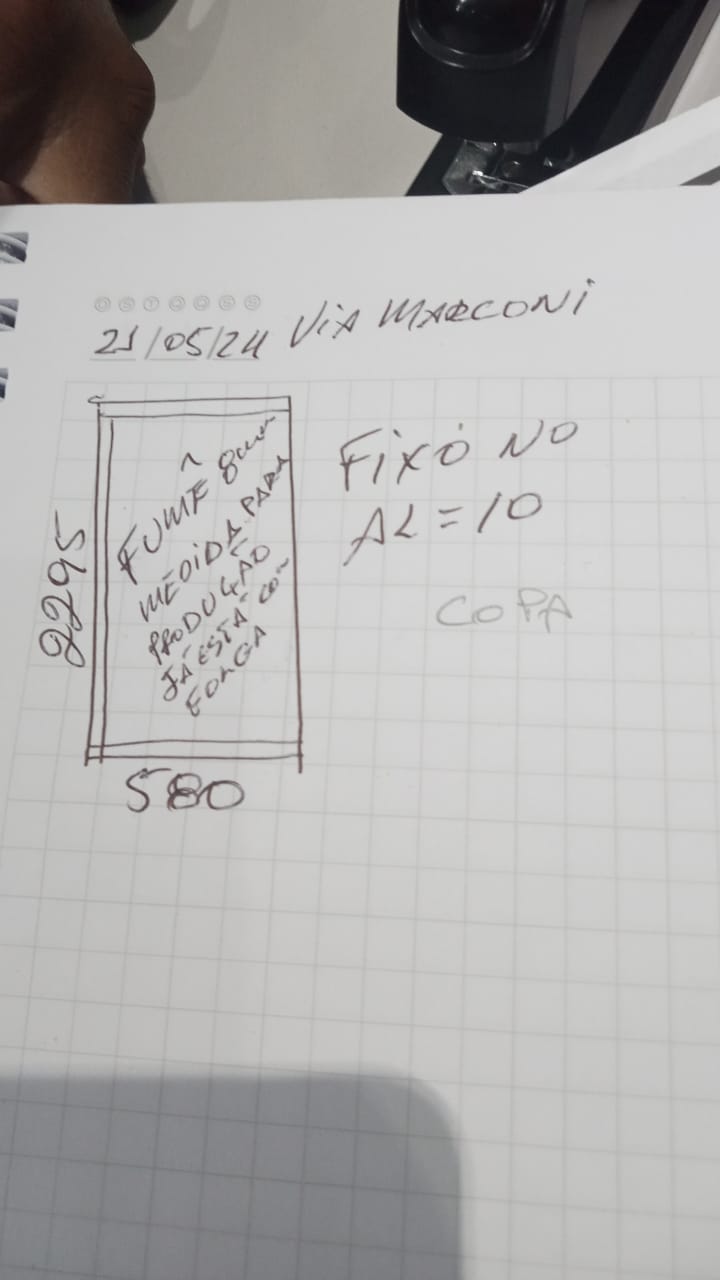 D S T Q Q S S
21/05/24 VIA MARCONI
FIXO NO
AL=10
COPA
FUMÊ 8mm
MEDIDA PARA
PRODUÇÃO
JÁ ESTÁ COM
FOLGA
2295
580